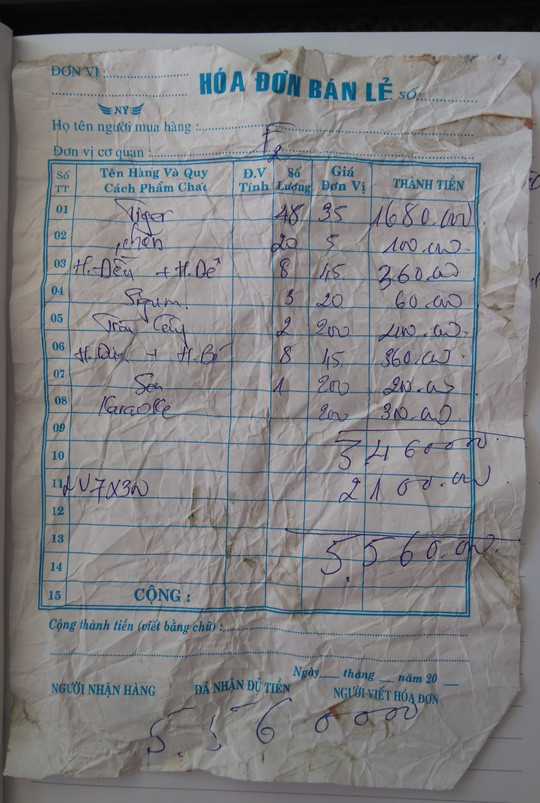 ĐƠN VỊ :
HÓA ĐƠN BÁN LẺ SỐ:
NY
Họ tên người mua hàng :
Đơn vị cơ quan :
F2
Số TT Tên Hàng Và Quy Cách Phẩm Chất Đ.V Tính Số Lượng Giá Đơn Vị THÀNH TIỀN
01 Tiger 48 35 1680.000
02 20 5 100.000
03 8 45 360.00
04 3 20 60.00
05 Trái Cây 2 200
06 8 45 360.00
07 1 200
08 Karaoke 300.00
09
10 3460000
11 7x300 2100.000
12
13 5.560.000
14
15 CỘNG :
Cộng thành tiền (viết bằng chữ) :
Ngày___ tháng __ năm 20 __
NGƯỜI NHẬN HÀNG ĐÃ NHẬN ĐỦ TIỀN NGƯỜI VIẾT HÓA ĐƠN
5.560000